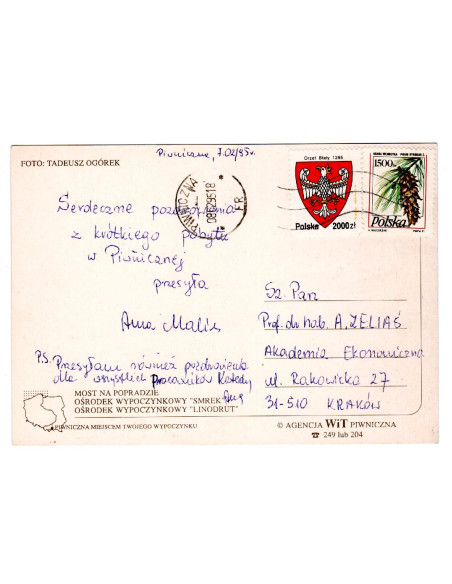 Piwniczna, 7.02/95r.
FOTO: TADEUSZ OGÓREK
Serdeczne pozdrowienia
z krótkiego pobytu
w Piwnicznej
przesyła
Anna Malin
P.S. Przesyłam również pozdrowienia
dla wszystkich Pracowników Katedry
MOST NA POPRADZIE
OŚRODEK WYPOCZYNKOWY "SMREK"
OŚRODEK WYPOCZYNKOWY "LINODRUT"
PIWNICZNA MIEJSCEM TWOJEGO WYPOCZYNKU
PIWNICZNA
Orzeł Biały 1295
Polska 2000zł
1500zł
Polska
Sz. Pan
Prof. dr hab. A. ZELIAŚ
Akademia Ekonomiczna
ul. Rakowicka 27
31-510 KRAKÓW
© AGENCJA WiT PIWNICZNA
☎ 249 lub 204